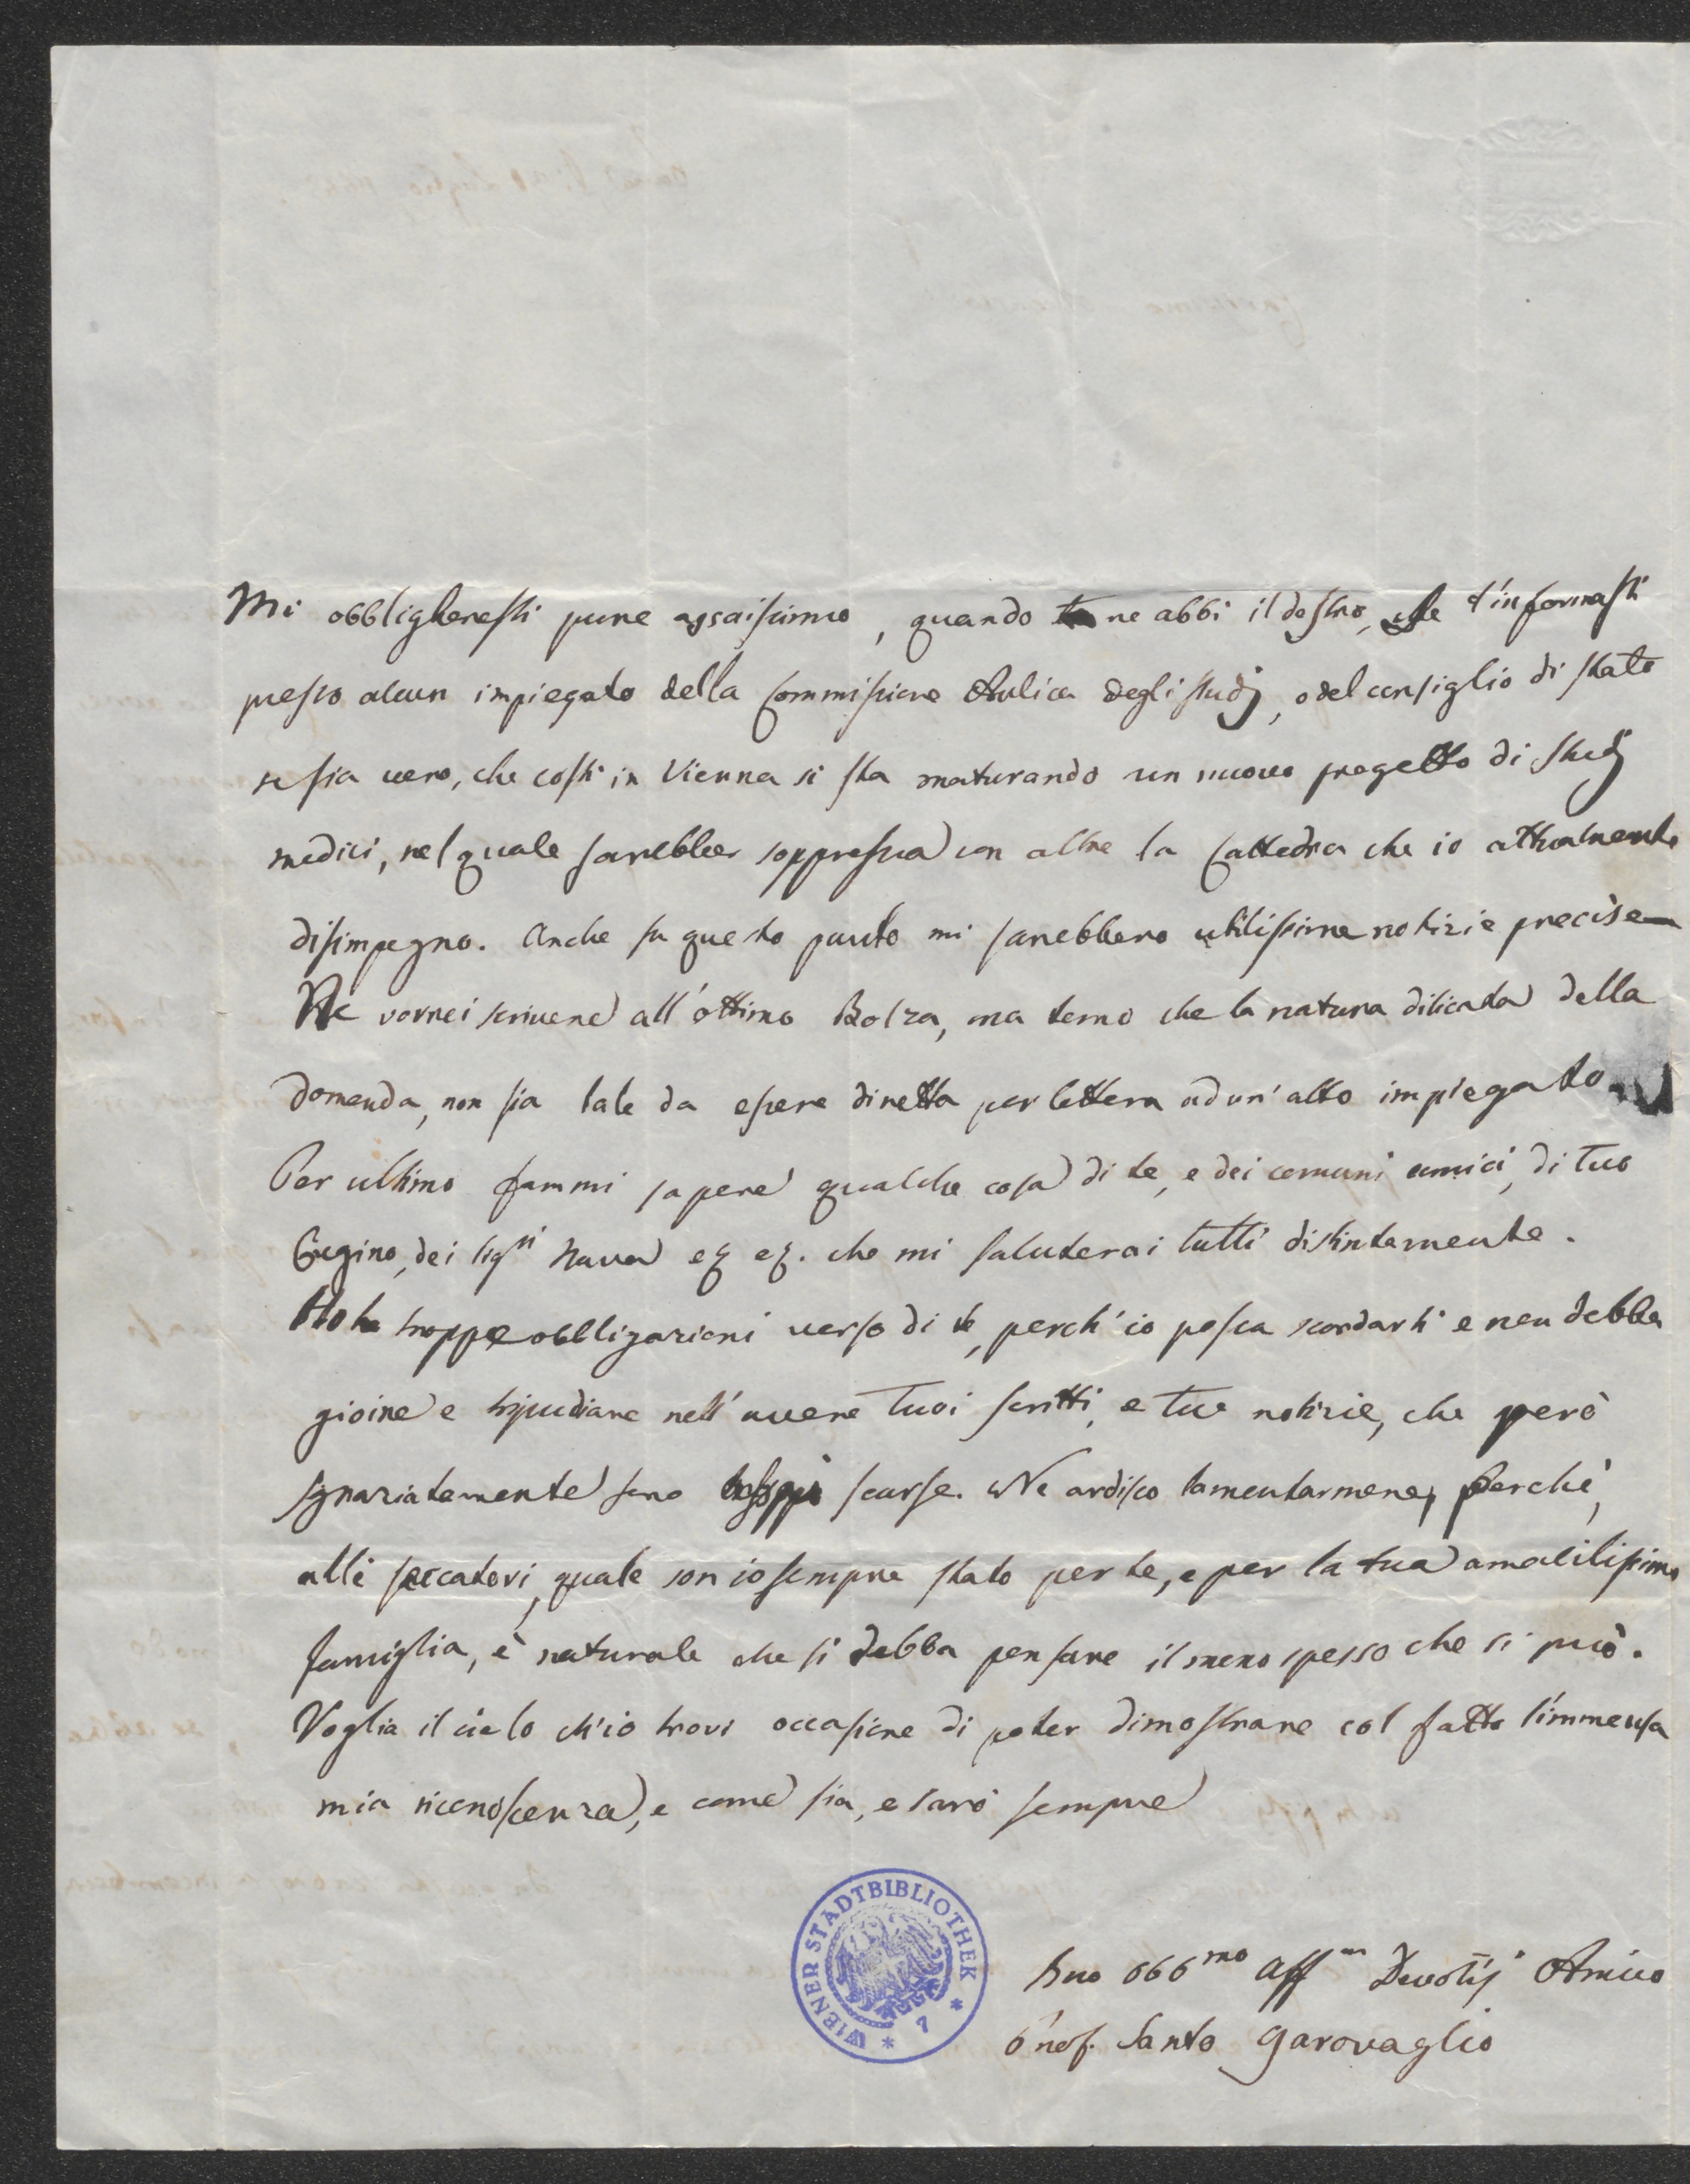 Mi obbligheresti pure assaissimo, quando ne abbi il destro, che t'informasti
presso alcun impiegato della Commissione Aulica degli studj, o del consiglio di stato
se sia vero, che costì in Vienna si sta maturando un nuovo progetto di studj
medici, nel quale sarebbe soppressa con altre la Cattedra che io attualmente
disimpegno. Anche su questo punto mi sarebbero utilissime notizie precise
Ne vorrei scrivere all'ottimo Bolza, ma temo che la natura dilicata della
domanda, non sia tale da essere diretta per lettera ad un'alto impiegato
Per ultimo fammi sapere qualche cosa di te, e dei comuni amici, di tuo
Cugino, dei sigri Nava ec ec. che mi saluterai tutti distintamente.
Ho troppe obbligazioni verso di te, perch'io possa scordarti e non debba
gioire e tripudiare nell'avere tuoi scritti, e tue notizie, che però
sgraziatamente sono troppo scarse. Ne ardisco lamentarmene, perchè,
alli seccatori, quale son io sempre stato per te, e per la tua amabilissima
famiglia, è naturale che si debba pensare il meno spesso che si può.
Voglia il cielo ch'io trovi occasione di poter dimostrare col fatto l'immensa
mia riconoscenza, e come sia, e sarò sempre
tuo obbmo aff Amico
Prof. Santo Garovaglio
WIENER STADTBIBLIOTHEK * 7 *